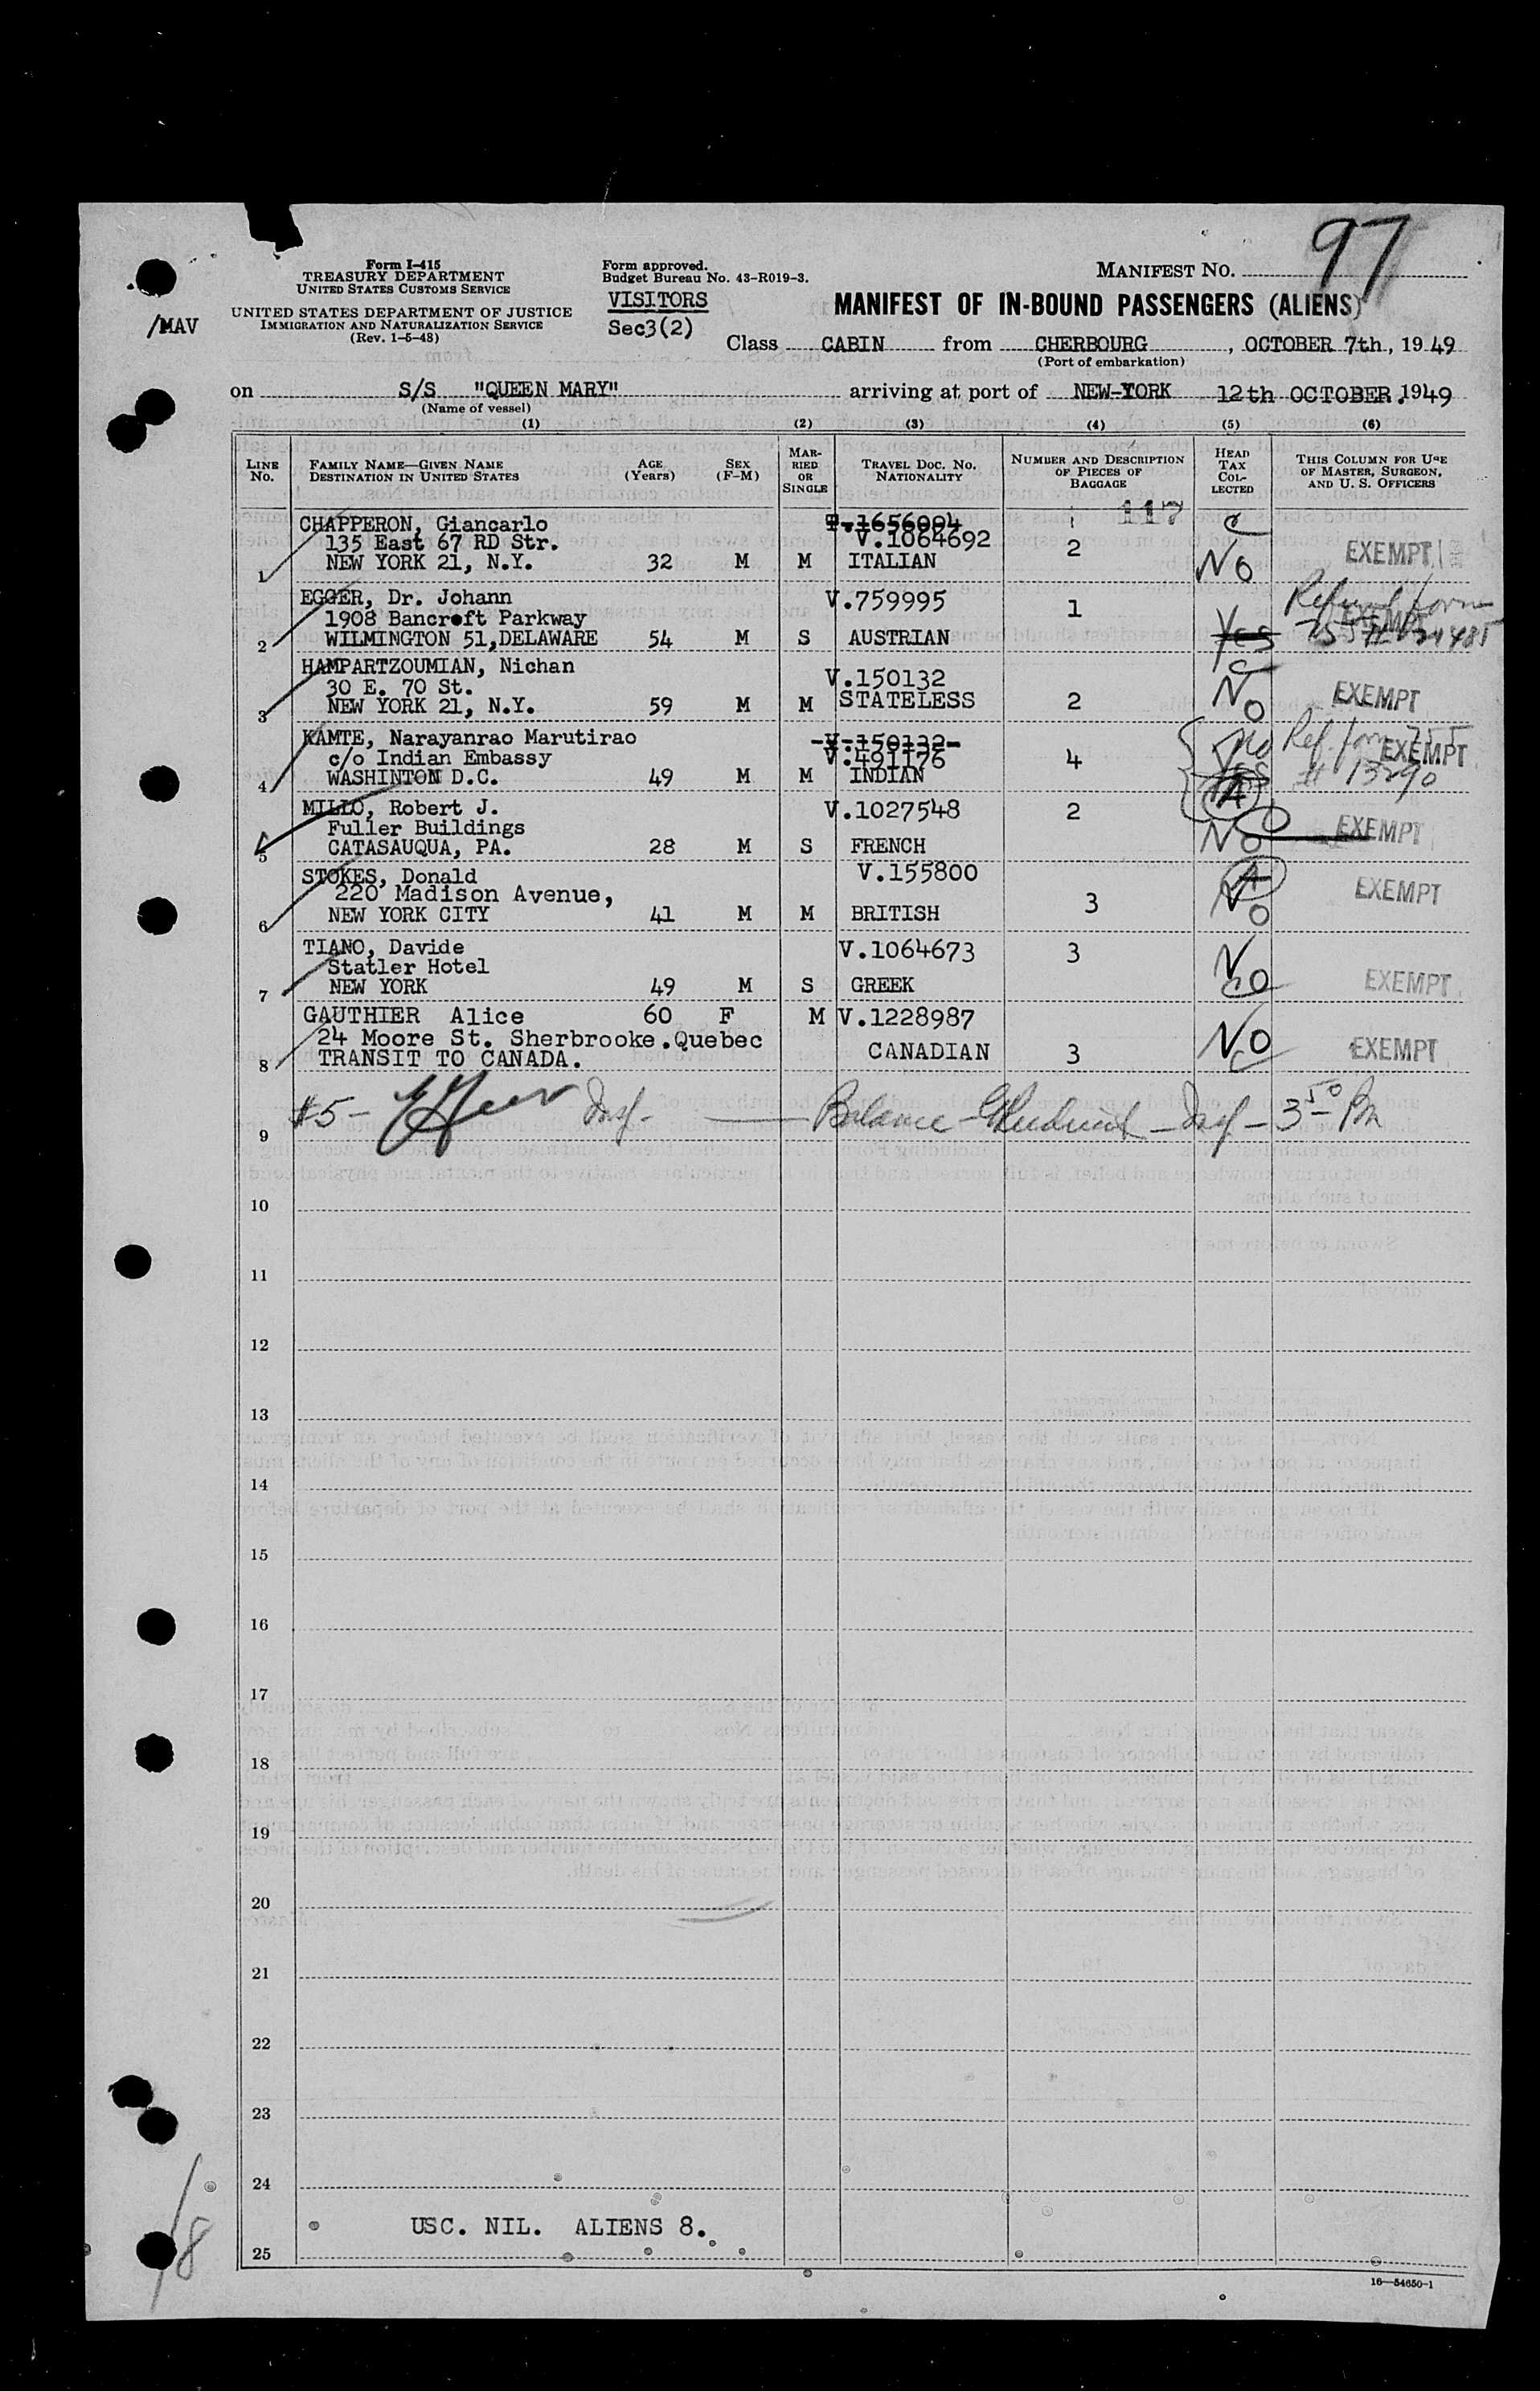 97
Form I-415
TREASURY DEPARTMENT
UNITED STATES CUSTOMS SERVICE
UNITED STATES DEPARTMENT OF JUSTICE
IMMIGRATION AND NATURALIZATION SERVICE
(Rev. 1-5-48)
/MAV
Form approved.
Budget Bureau No. 43-R019-3.
VISITORS
Sec3(2)
MANIFEST NO.
MANIFEST OF IN-BOUND PASSENGERS (ALIENS)
Class CABIN from CHERBOURG, OCTOBER 7th, 1949
(Port of embarkation)
on S/S "QUEEN MARY" arriving at port of NEW-YORK 12th OCTOBER.1949
(Name of vessel)
(1) (2) (3) (4) (5) (6)
LINE NO. FAMILY NAME—GIVEN NAME DESTINATION IN UNITED STATES AGE (Years) SEX (F-M) MARRIED OR SINGLE TRAVEL DOC. NO. NATIONALITY NUMBER AND DESCRIPTION OF PIECES OF BAGGAGE HEAD TAX COLLECTED THIS COLUMN FOR USE OF MASTER, SURGEON, AND U. S. OFFICERS
117
CHAPPERON, Giancarlo P.1656004
135 East 67 RD Str. V.1064692 2
1 NEW YORK 21, N.Y. 32 M M ITALIAN No EXEMPT
EGGER, Dr. Johann V.759995 1 Refund form
1908 Bancroft Parkway EXEMPT
2 WILMINGTON 51,DELAWARE 54 M S AUSTRIAN Yes
HAMPARTZOUMIAN, Nichan V.150132
30 E. 70 St.
3 NEW YORK 21, N.Y. 59 M M STATELESS 2 No EXEMPT
KAMTE, Narayanrao Marutirao -V.150132- No Ref. form 755
c/o Indian Embassy V.491176 4 Yes EXEMPT
4 WASHINTON D.C. 49 M M INDIAN # 13290
MILLO, Robert J. V.1027548 2
Fuller Buildings EXEMPT
5 CATASAUQUA, PA. 28 M S FRENCH No
STOKES, Donald V.155800
220 Madison Avenue, 3 EXEMPT
6 NEW YORK CITY 41 M M BRITISH No
TIANO, Davide V.1064673 3
Statler Hotel
7 NEW YORK 49 M S GREEK No EXEMPT
GAUTHIER Alice 60 F M V.1228987
24 Moore St. Sherbrooke.Quebec CANADIAN 3 No EXEMPT
8 TRANSIT TO CANADA.
9 #5- Insp- Balance - Insp - 3 50
10
11
12
13
14
15
16
17
18
19
20
21
22
23
24
USC. NIL. ALIENS 8.
25
8
16—54650-1